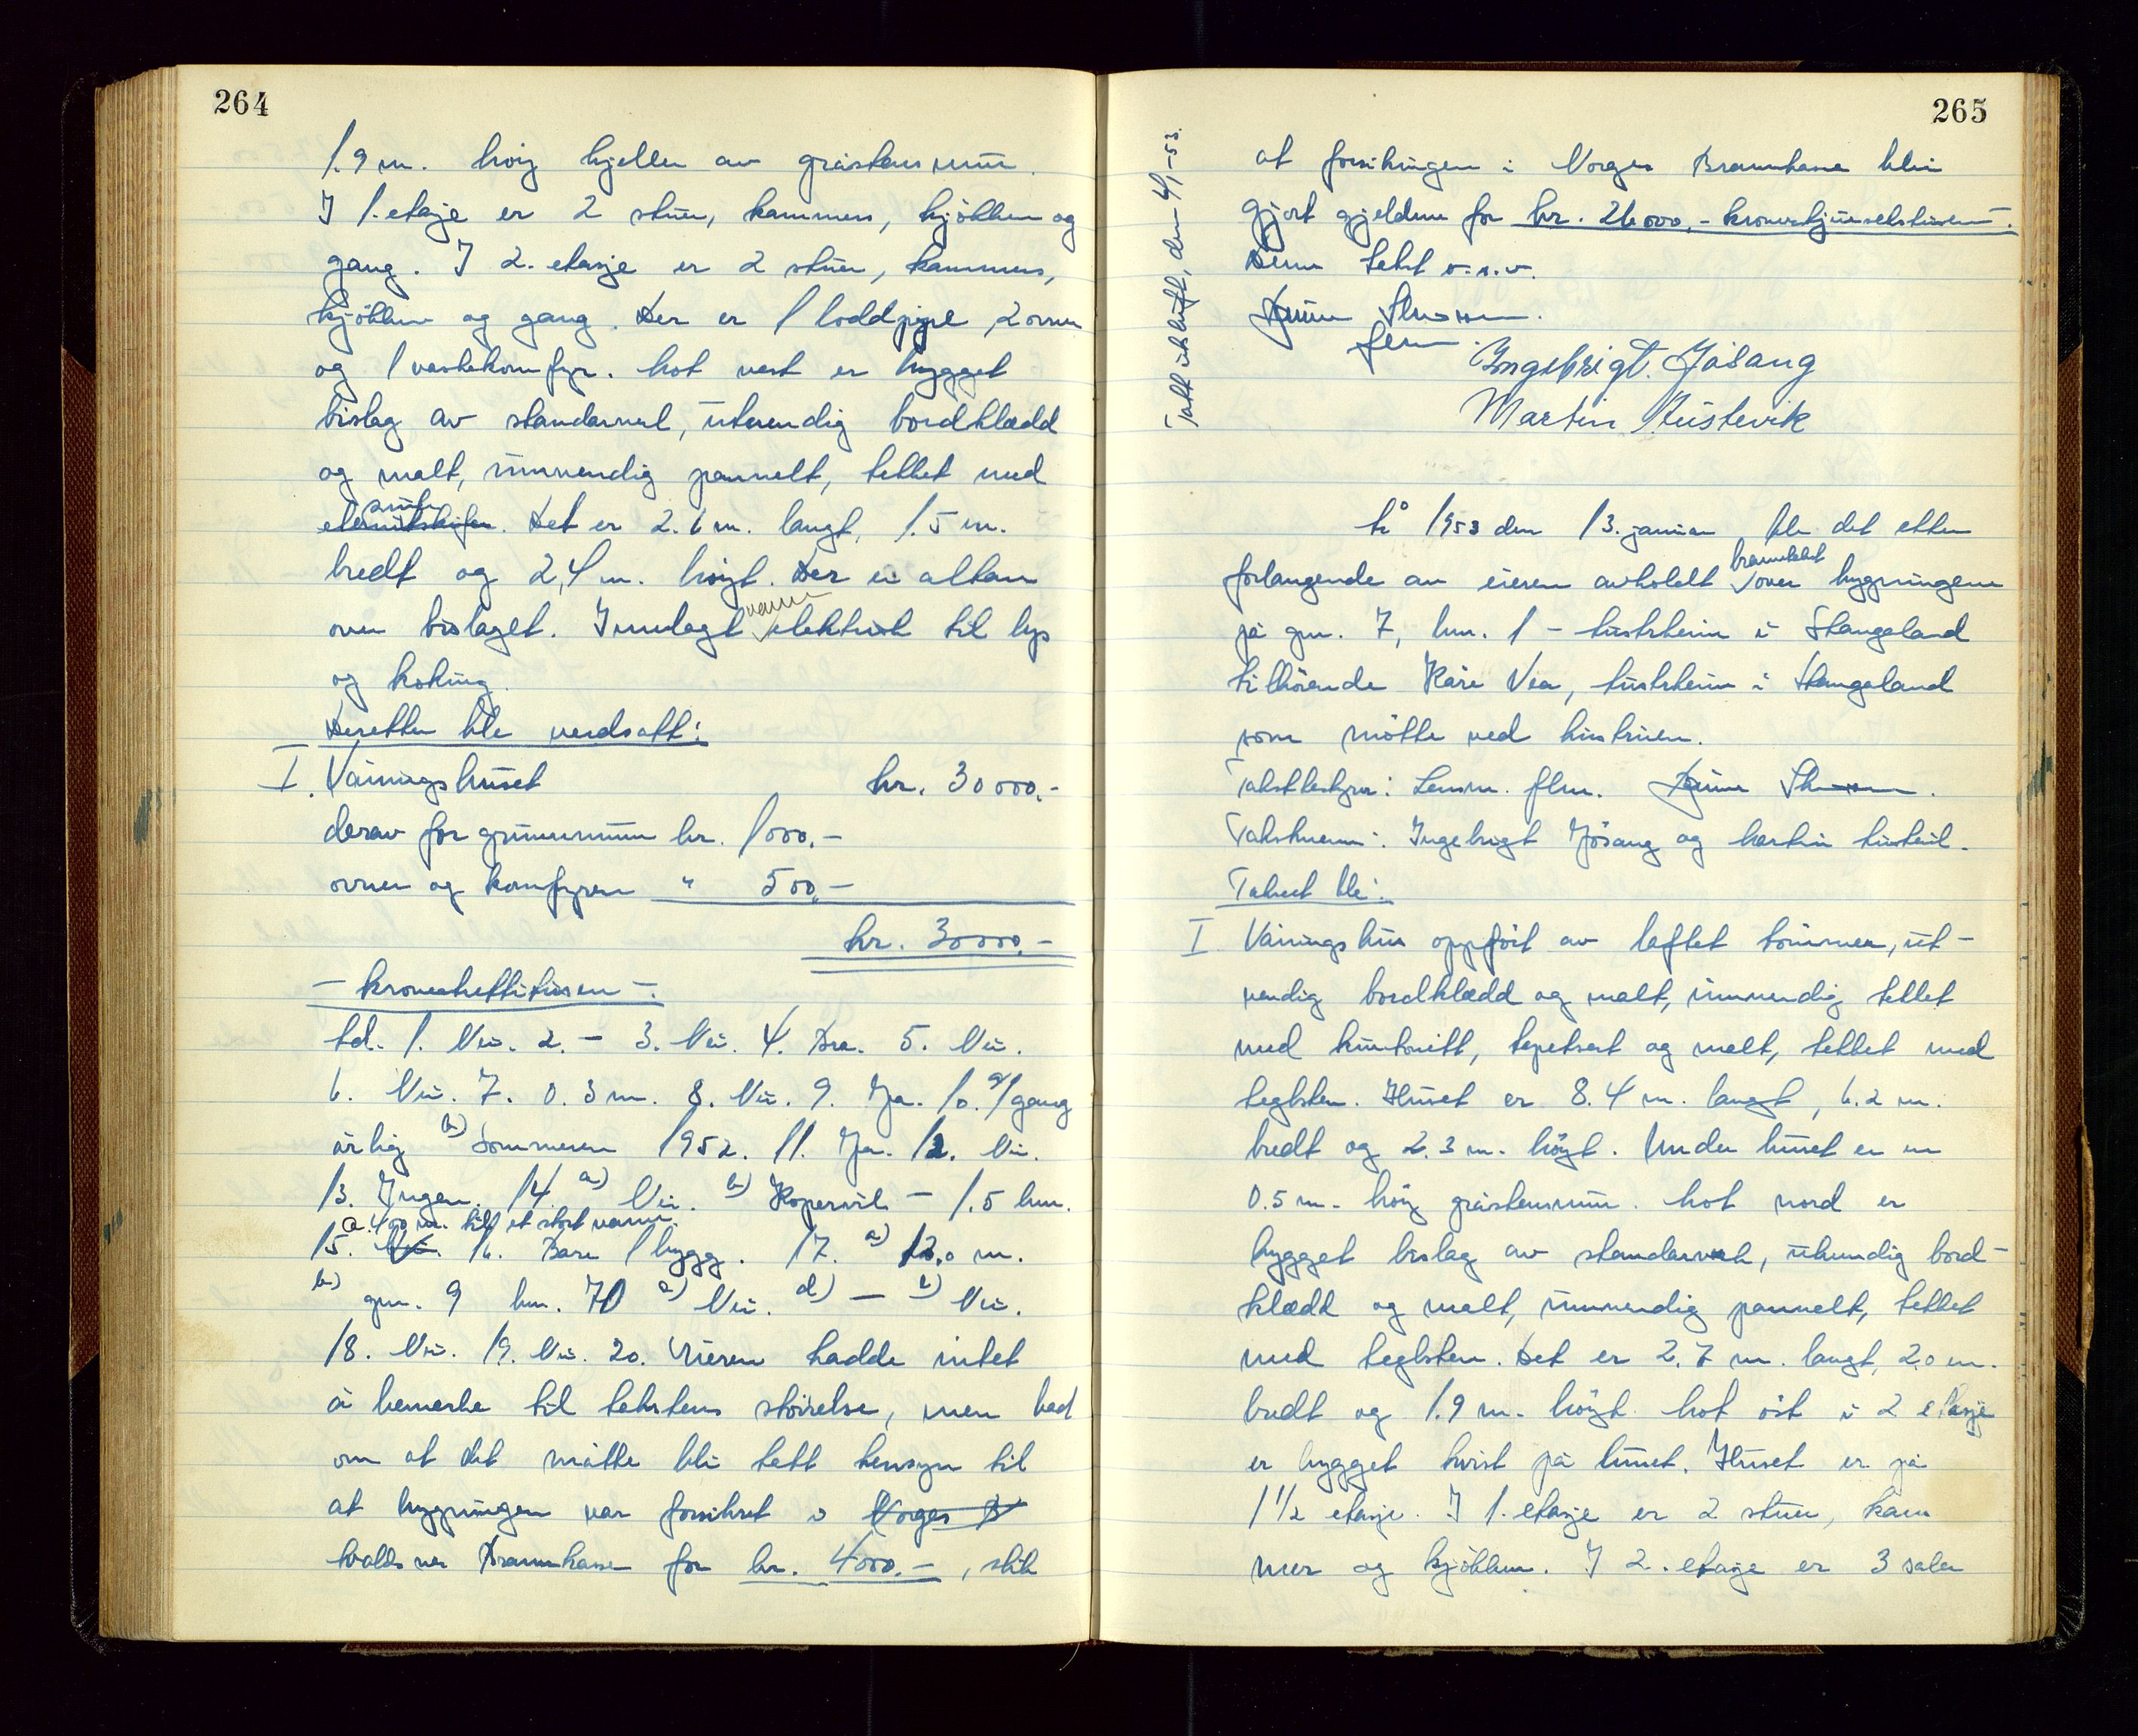 264
1.9 m. høy kjeller av gråstensmur.
I 1. etasje er 2 stuer, kammers, kjøkken og
gang. I 2. etasje er 2 stuer, kammers,
kjøkken og gang. Der er 1 loddpipe, 2 ovner
og 1 vaskekomfyr. Mot vest er bygget
bislag av standarverk, utvendig bordklædd
og malt, innvendig pannelt, tekket med
skifer
eternitskifer. Det er 2.6 m. langt, 1.5 m.
bredt og 2,4 m. høyt. Der er altan
over bislaget. Innlagt vann elektrisk til lys
og koking.
Deretter ble verdsatt:
I. Våningshuset kr. 30000.-
derav for grunnmur kr. 1000.-
ovner og komfyren " 500.-
kr. 30000.-
- kronertrettitusen -.
td. 1. Nei. 2. - 3. Nei. 4. Bra. 5. Nei.
6. Nei. 7. 0.3 m. 8. Nei. 9. Ja. 10. a) 1 gang
årlig b) Sommeren 1952. 11. Ja. 12. Nei.
13. Ingen. 14. a) Nei. b) Kopervik - 1.5 km.
a. 400 m. til et stort vann.
15. Nei. 16. Bare 1 bygg. 17. a) 12.0 m.
b) gnr. 9 bnr. 70 c) Nei. d) - e) Nei.
18. Nei. 19. Nei. 20. Eieren hadde intet
å bemerke til takstens størrelse, men bad
om at det måtte bli tatt hensyn til
at bygningen var forsikret i Norges B
Brannkasse for kr. 4000.-, slik
265
at forsikringen i Norges Brannkasse blir
gjort gjeldene for kr. 26000.- kronertjuesekstusen -.
Denne takst o.s.v.
Ingebrigt Jøsang
Martin Austevik
Tatt utskrift, den 4/1-53.
År 1953 den 13. januar ble det etter
branntakst
forlangende av eieren avholdt over bygningene
på gnr. 7, bnr. 1 - Austrheim i Stangaland
tilhørende Kåre Vea, Austrheim i Stangaland
som møtte ved hustruen.
Takstbestyrer: Lensm. flm.
Takstmenn: Ingebrigt Jøsang og Martin Austevik.
Takset ble:
I Våningshus oppført av laftet tømmer, ut-
vendig bordklædd og malt, innvendig tekket
med huntonitt, tapetsert og malt, tekket med
teglsten. Huset er 8.4 m. langt, 6.2 m.
bredt og 2.3 m. høyt. Under huset er en
0.5 m. høy gråstensmur. Mot nord er
bygget bislag av standarverk, utvendig bord-
klædd og malt, innvendig pannelt, tekket
med teglsten. Det er 2.7 m. langt, 2.0 m.
bredt og 1.9 m. høyt. Mot øst i 2 etasje
er bygget kvist på huset. Huset er på
1 1/2 etasje. I 1. etasje er 2 stuer, kam
mer og kjøkken. I 2. etasje er 3 saler